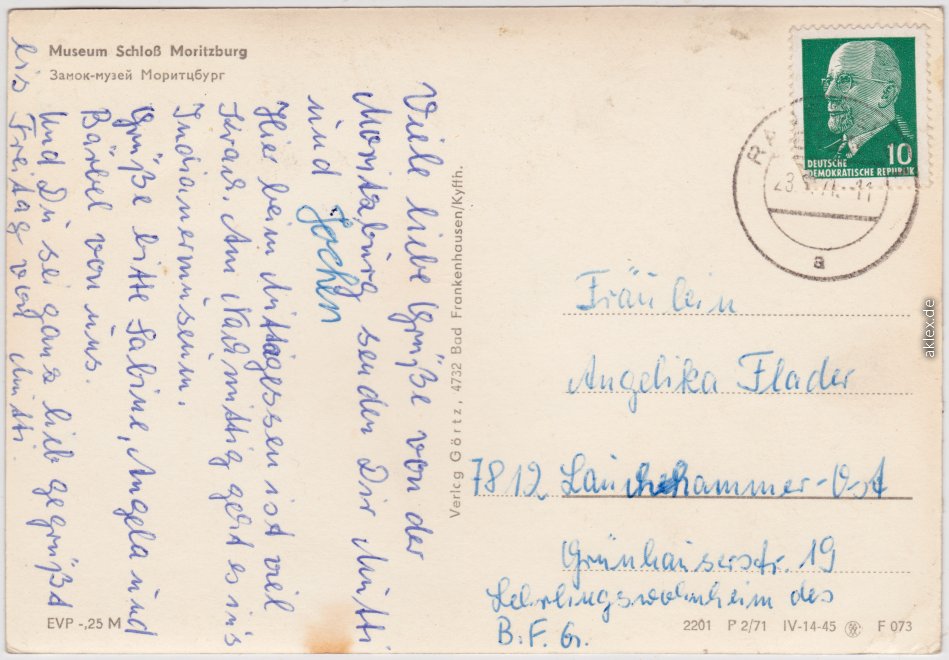 Museum Schloß Moritzburg
Замок-музей Моритцбург
Viele liebe Grüße von der
Moritzburg senden Dir Mutti
und Jochen
Hier beim Mittagessen ist viel
Krach. Am Nachmittag geht es ins
Indianermuseum.
Grüße bitte Sabine, Angela und
Bärbel von uns.
Und Du sei ganz lieb gegrüßt
bis Freitag von Mutti.
Verlag Görtz, 4732 Bad Frankenhausen/Kyffh.
DEUTSCHE
DEMOKRATISCHE REPUBLIK
10
a
Fräulein
Angelika Flader
7812 Lauchhammer-Ost
Grünhauserstr. 19
Lehrlingswohnheim des
B.F.G.
EVP -,25 M
2201 P 2/71 IV-14-45 F 073
aklex.de